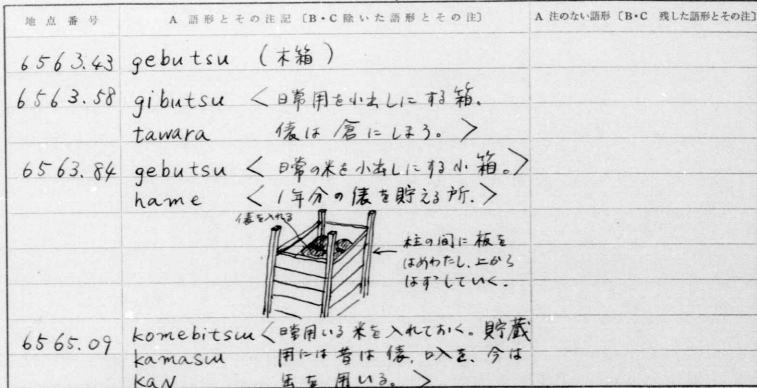 地点番号 A 語形とその注記〔B・C 除いた語形とその注〕 A 注のない語形〔B・C 残した語形とその注〕
6563.43 gebutsu (木箱)
6563.58 gibutsu <日常用を小出しにする箱。
tawara 俵は倉にしまう。>
6563.84 gebutsu <日常の米を小出しにする小箱。>
hame <1年分の俵を貯える所.>
俵を入れる
柱の間に板を
はめわたし、上から
はずしていく.
6565.09 komebitsuu <日常用いる米を入れておく。貯蔵
kamasuu 用には昔は俵, 叺を、今は
kaN 缶を用いる。>